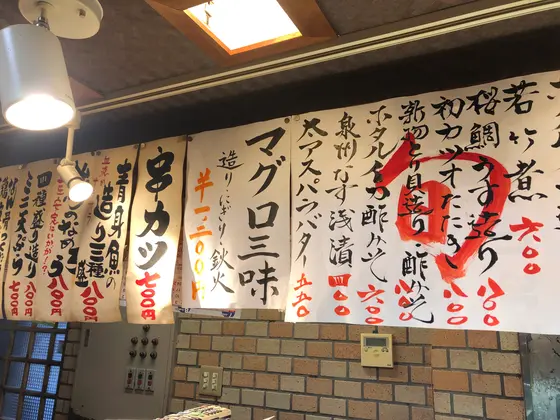 若竹煮 六〇〇
桜鯛うす造り 八〇〇
初カツオたたき 八〇〇
ホタルイカ酢みそ 六〇〇
泉州なす浅漬 四〇〇
太アスパラバター 五五〇
旬
マグロ三味
造り・にぎり・鉄火
半一、二〇〇円
串カツ 七〇〇円
青身魚の
造り三種 八〇〇円
四種盛り造り 八〇〇円
ミニ天ぷら 四〇〇円